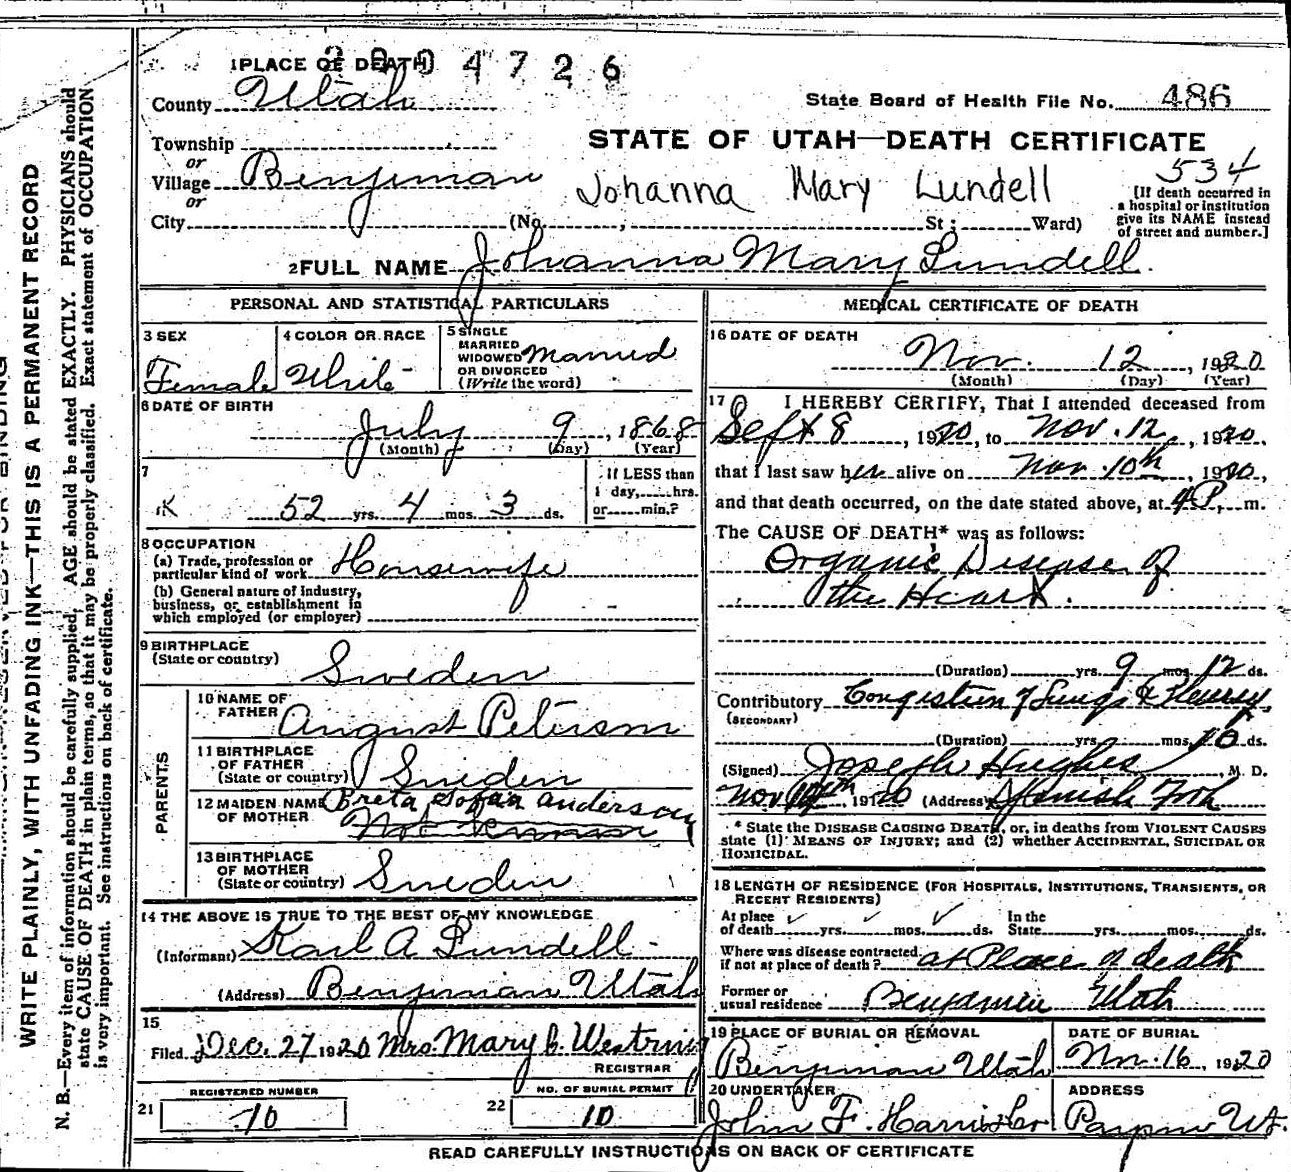 1 PLACE OF DEATH
2004726
County Utah
State Board of Health File No. 486
STATE OF UTAH—DEATH CERTIFICATE
Township
or
Village Benjiman
or
Johanna Mary Lundell
534
[If death occurred in
a hospital or institution
give its NAME instead
of street and number.]
City (No. , St; Ward)
2 FULL NAME Johanna Mary Lundell.
PERSONAL AND STATISTICAL PARTICULARS
3 SEX
Female
4 COLOR OR RACE
White
5 SINGLE
MARRIED
WIDOWED
OR DIVORCED
(Write the word)
Married
6 DATE OF BIRTH
July 9, 1868
(Month) (Day) (Year)
7
52 yrs. 4 mos. 3 ds.
If LESS than
1 day, hrs.
or min.?
8 OCCUPATION
(a) Trade, profession or
particular kind of work Housewife
(b) General nature of industry,
business, or establishment in
which employed (or employer)
9 BIRTHPLACE
(State or country) Sweden
PARENTS
10 NAME OF
FATHER August Peterson
11 BIRTHPLACE
OF FATHER
(State or country) Sweden
12 MAIDEN NAME
OF MOTHER Greta Sofia Anderson
Not Known
13 BIRTHPLACE
OF MOTHER
(State or country) Sweden
14 THE ABOVE IS TRUE TO THE BEST OF MY KNOWLEDGE
(Informant) Karl A Lundell
(Address) Benjiman Utah
15
Filed Dec. 27 1920 Mrs. Mary C. Westring
REGISTRAR
REGISTERED NUMBER
21 10
NO. OF BURIAL PERMIT
22 10
MEDICAL CERTIFICATE OF DEATH
16 DATE OF DEATH
Nov. 12, 1920
(Month) (Day) (Year)
17 I HEREBY CERTIFY, That I attended deceased from
Sept 8, 1920, to Nov. 12, 1920,
that I last saw her alive on Nov. 10th, 1920,
and that death occurred, on the date stated above, at 4 P. m.
The CAUSE OF DEATH* was as follows:
Organic Disease of
the Heart.
(Duration) yrs. 9 mos. 12 ds.
Contributory Congestion of Lungs & Pleurey
(SECONDARY)
(Duration) yrs. mos. 16 ds.
(Signed) Joseph Hughes, M. D.
Nov , 1920 (Address) Spanish Fork
* State the DISEASE CAUSING DEATH, or, in deaths from VIOLENT CAUSES
state (1) MEANS OF INJURY; and (2) whether ACCIDENTAL, SUICIDAL OR
HOMICIDAL.
18 LENGTH OF RESIDENCE (FOR HOSPITALS, INSTITUTIONS, TRANSIENTS, OR
RECENT RESIDENTS)
At place
of death yrs. mos. ds.
In the
State yrs. mos. ds.
Where was disease contracted,
if not at place of death? at Place of death
Former or
usual residence Benjamin Utah
19 PLACE OF BURIAL OR REMOVAL
Benjiman Utah
DATE OF BURIAL
Nov. 16, 1920
20 UNDERTAKER
John F.
ADDRESS
Payson Ut.
READ CAREFULLY INSTRUCTIONS ON BACK OF CERTIFICATE
WRITE PLAINLY, WITH UNFADING INK—THIS IS A PERMANENT RECORD
N. B.—Every item of information should be carefully supplied, AGE should be stated EXACTLY. PHYSICIANS should
state CAUSE OF DEATH in plain terms, so that it may be properly classified. Exact statement of OCCUPATION
is very important. See instructions on back of certificate.